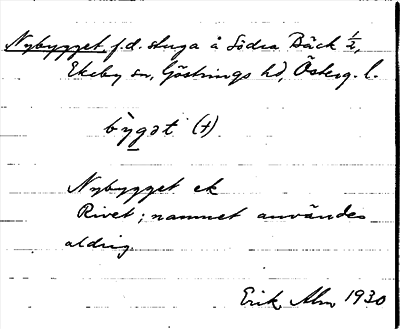 Nybygget, f.d. stuga å Södra Bäck ½,
Ekeby sn, Göstrings hd, Österg. l.
bỳgət (+)
Nybygget ek
Rivet; namnet användes
aldrig.
Erik Alm 1930